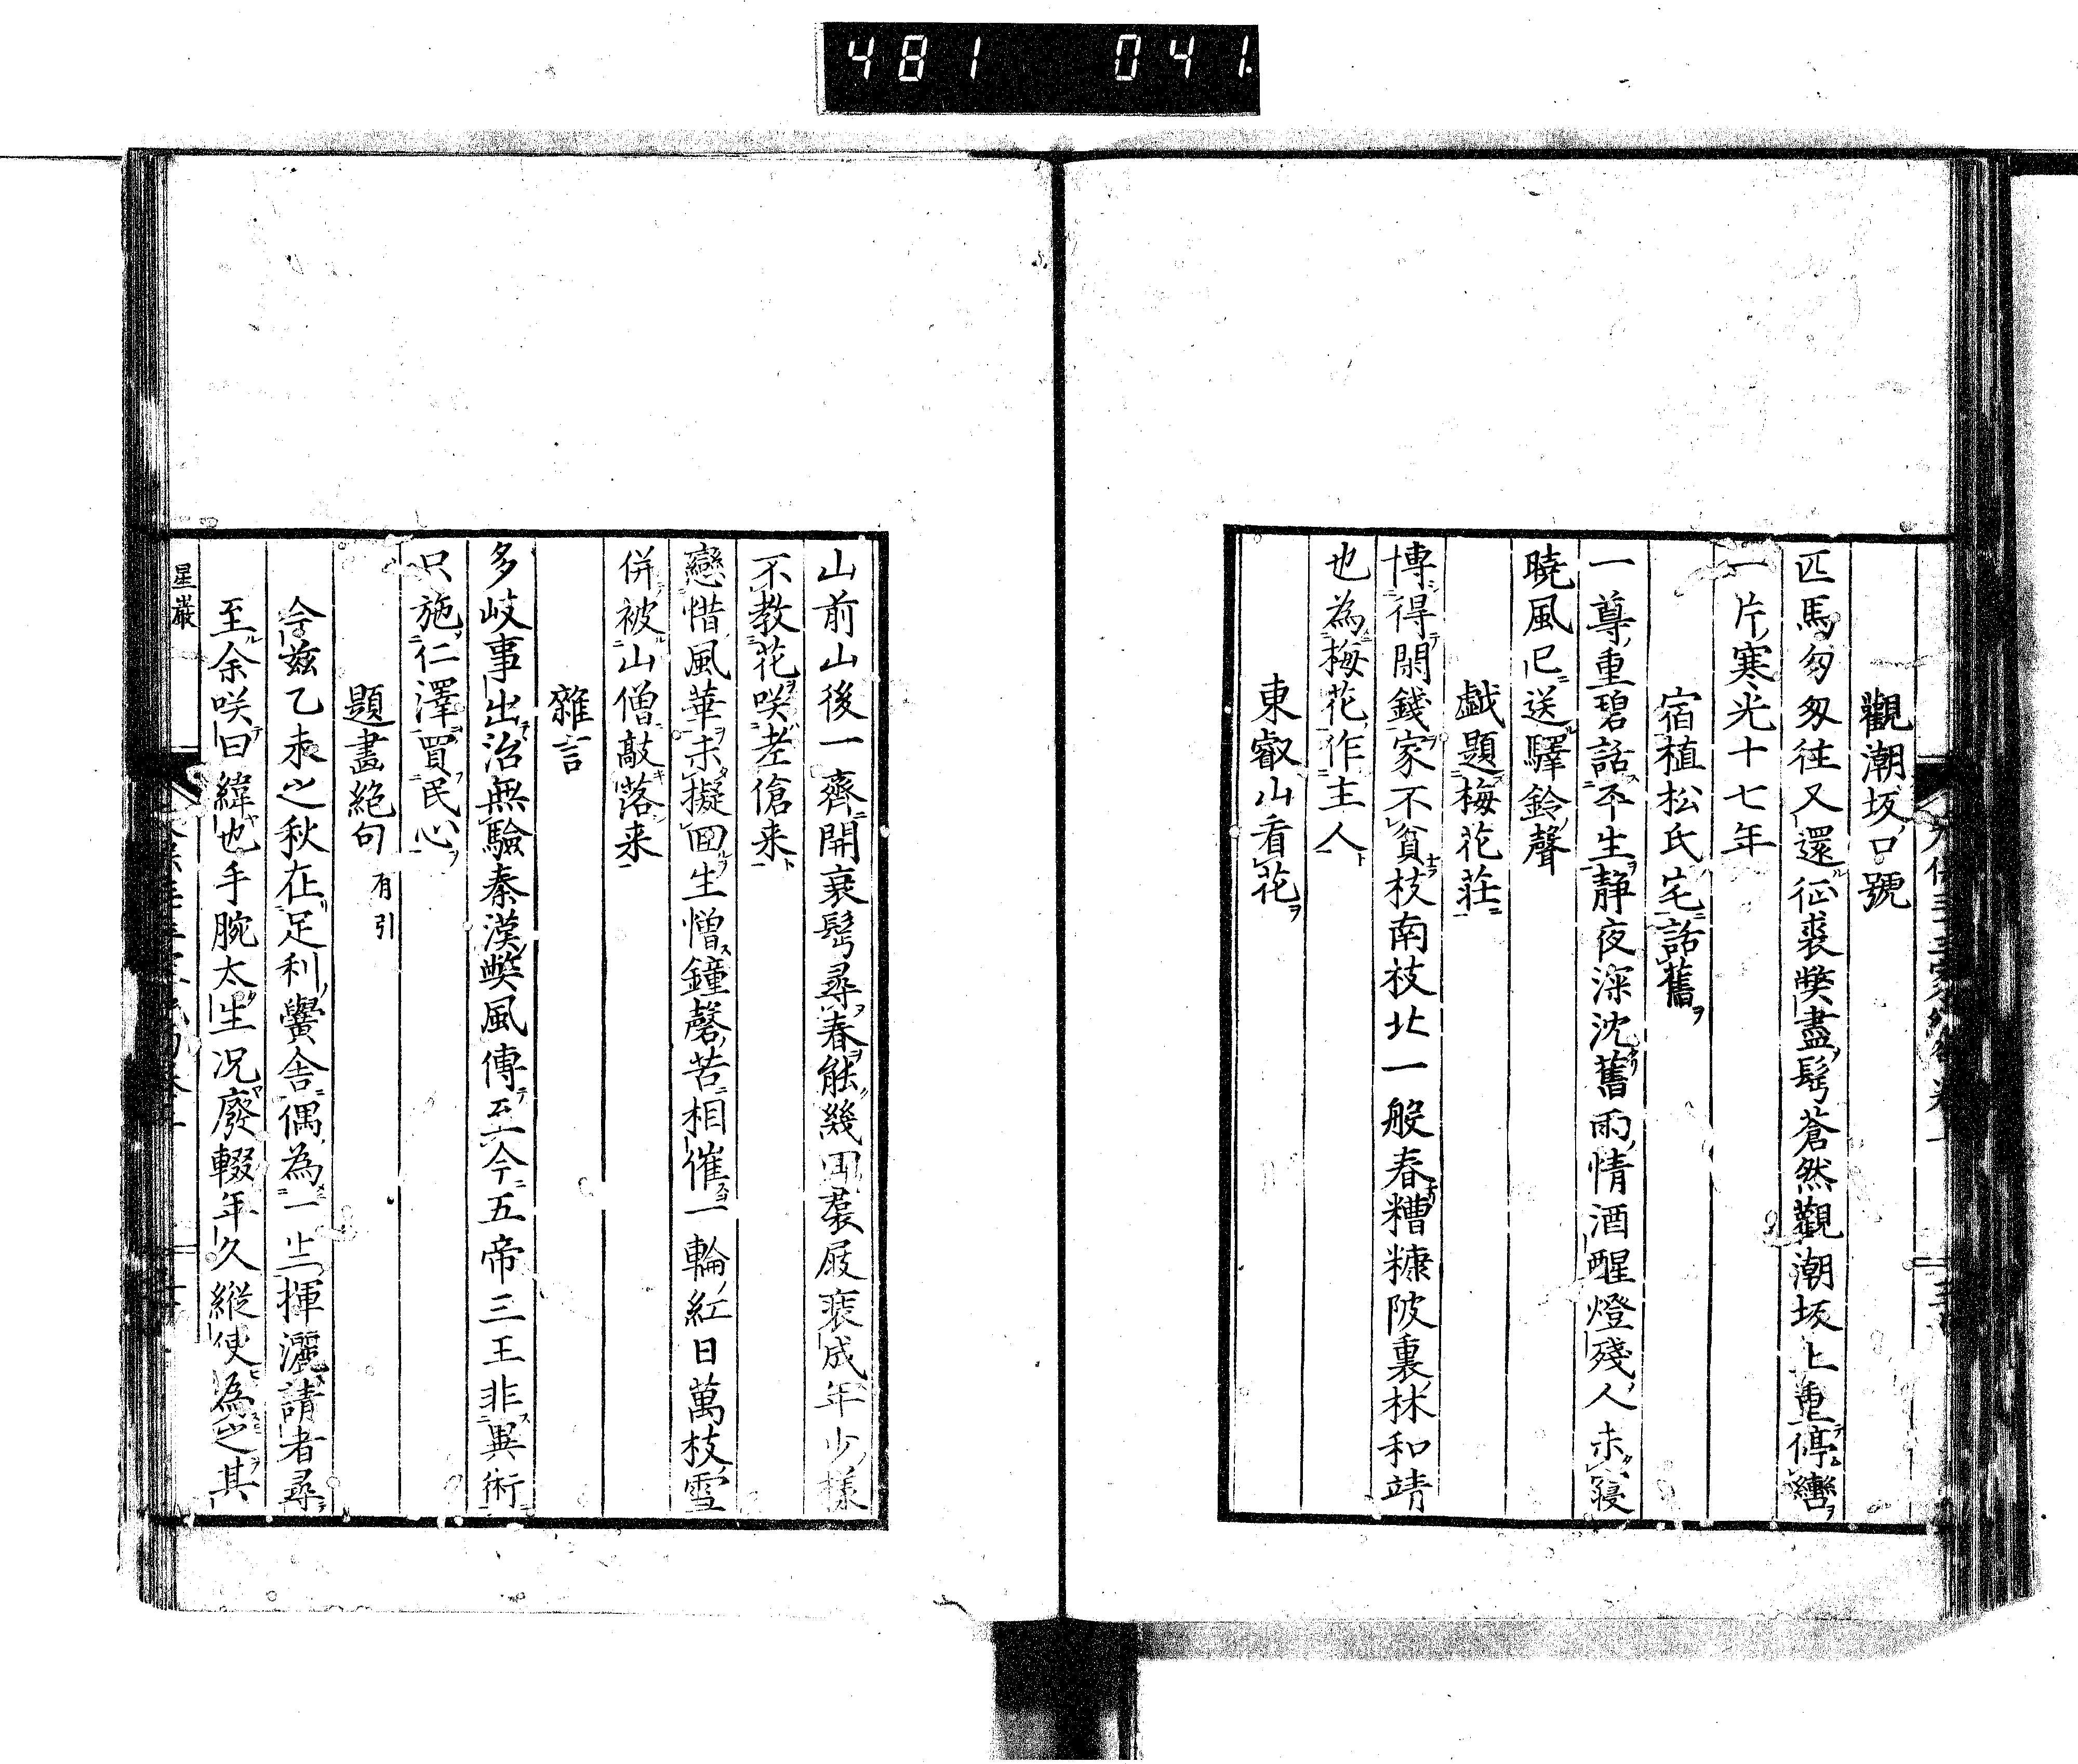 481 041
觀潮坂口號
匹馬匆匆往又還征裘弊盡鬂蒼然觀潮坂上重停轡
一片寒光十七年
宿植松氏宅話舊
一尊重碧話平生靜夜深沈舊雨情酒醒燈殘人未寢
曉風已送驛鈴聲
戯題梅花莊
博得閑錢家不貧枝南枝北一般春糟糠陂裏林和靖
也為梅花作主人
東叡山看花
山前山後一齊開衰鬂尋春能幾回裙屐裝成年少樣
不教花咲老傖来
戀惜風華未擬回生憎鐘磬苦相催一輪紅日萬枝雪
併被山僧敲落来
雜言
多岐事出治無驗秦漢弊風傳至今五帝三王非異術
只施仁澤買民心
題畫絶句 有引
今茲乙未之秋在足利黌舍偶為一二揮灑請者尋
至余咲曰緯也手腕太生况廢輟年久縱使為之其
星巖